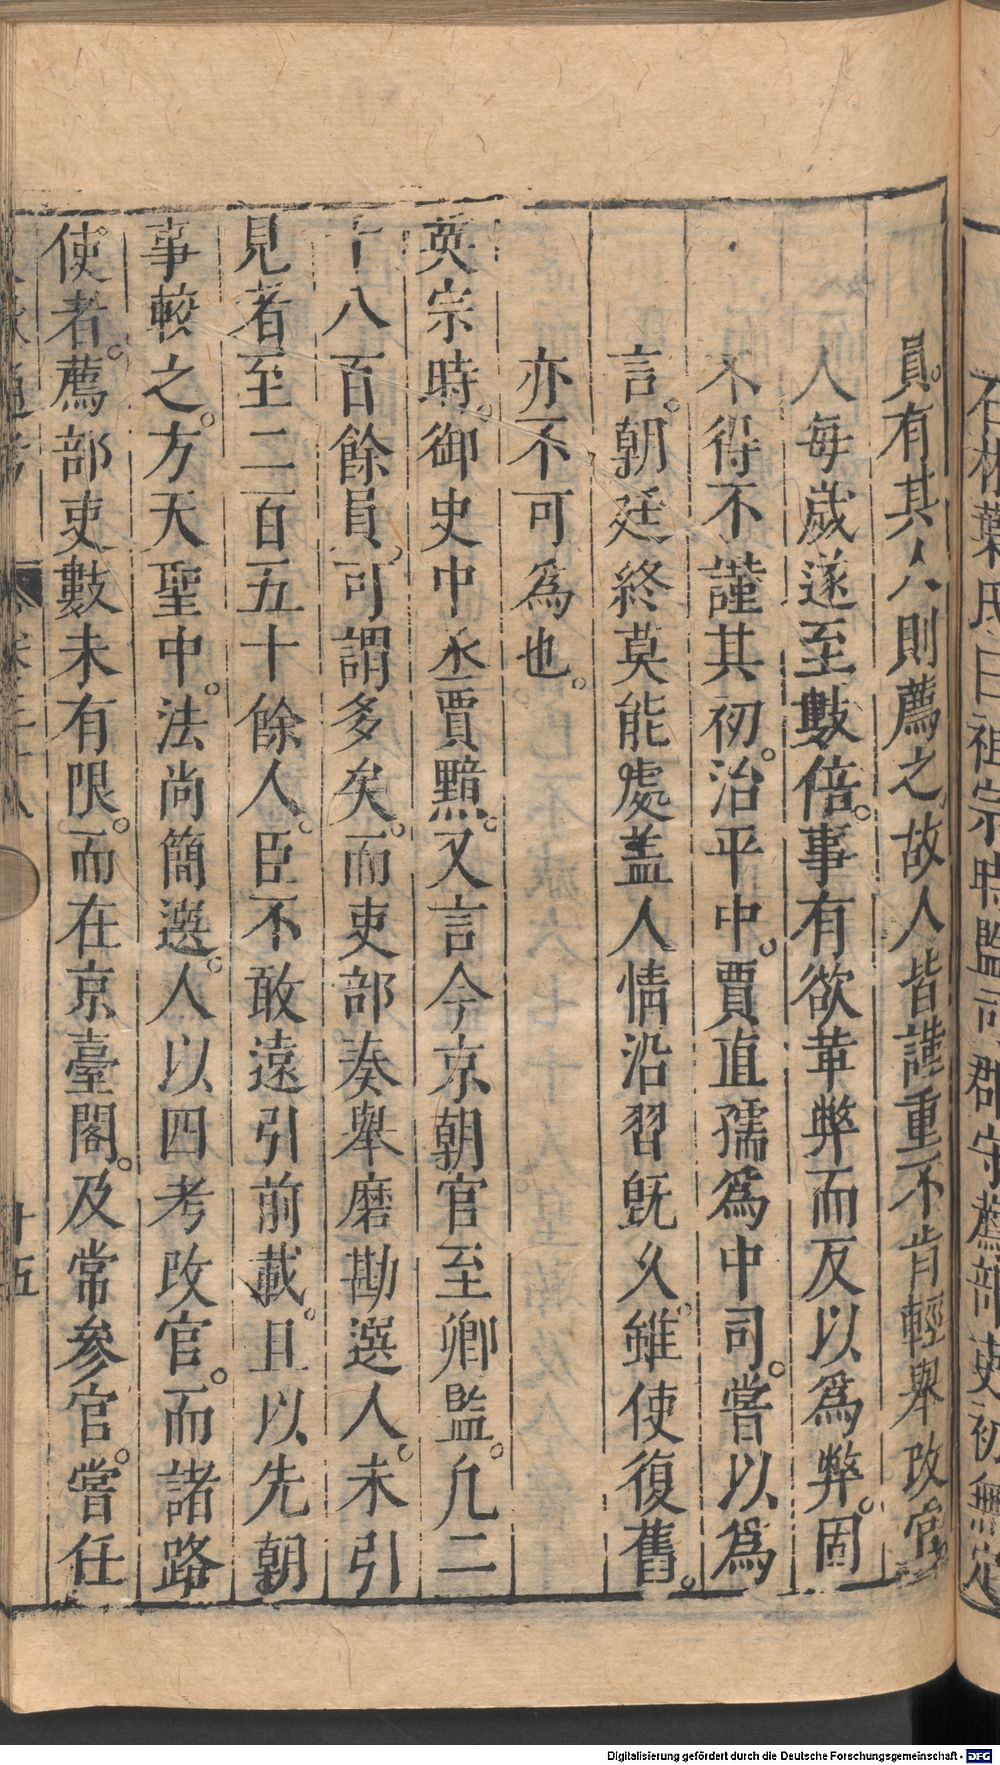 石林葉氏曰祖宗時監司郡守薦部吏初無定
員。有其人則薦之。故人皆謹重不肯輕舉改官
人每歲遂至數倍。事有欲革弊而反以為弊。固
不得不謹其初。治平中。賈直孺爲中司。嘗以爲
言。朝廷終莫能處盖人情沿習旣乆。雖使復舊。
亦不可爲也。
英宗時。御史中丞賈黯。又言今京朝官至卿監。凢二
千八百餘員。可謂多矣。而吏部奏舉磨勘選人。未引
見者至二百五十餘人。臣不敢遠引前載。且以先朝
事較之。方天聖中。法尚簡選。人以四考改官。而諸路
使者。薦部吏數未有限。而在京臺閣。及常参官。嘗任
文獻通考 卷三十八 十五
Digitalisierung gefördert durch die Deutsche Forschungsgemeinschaft - DFG